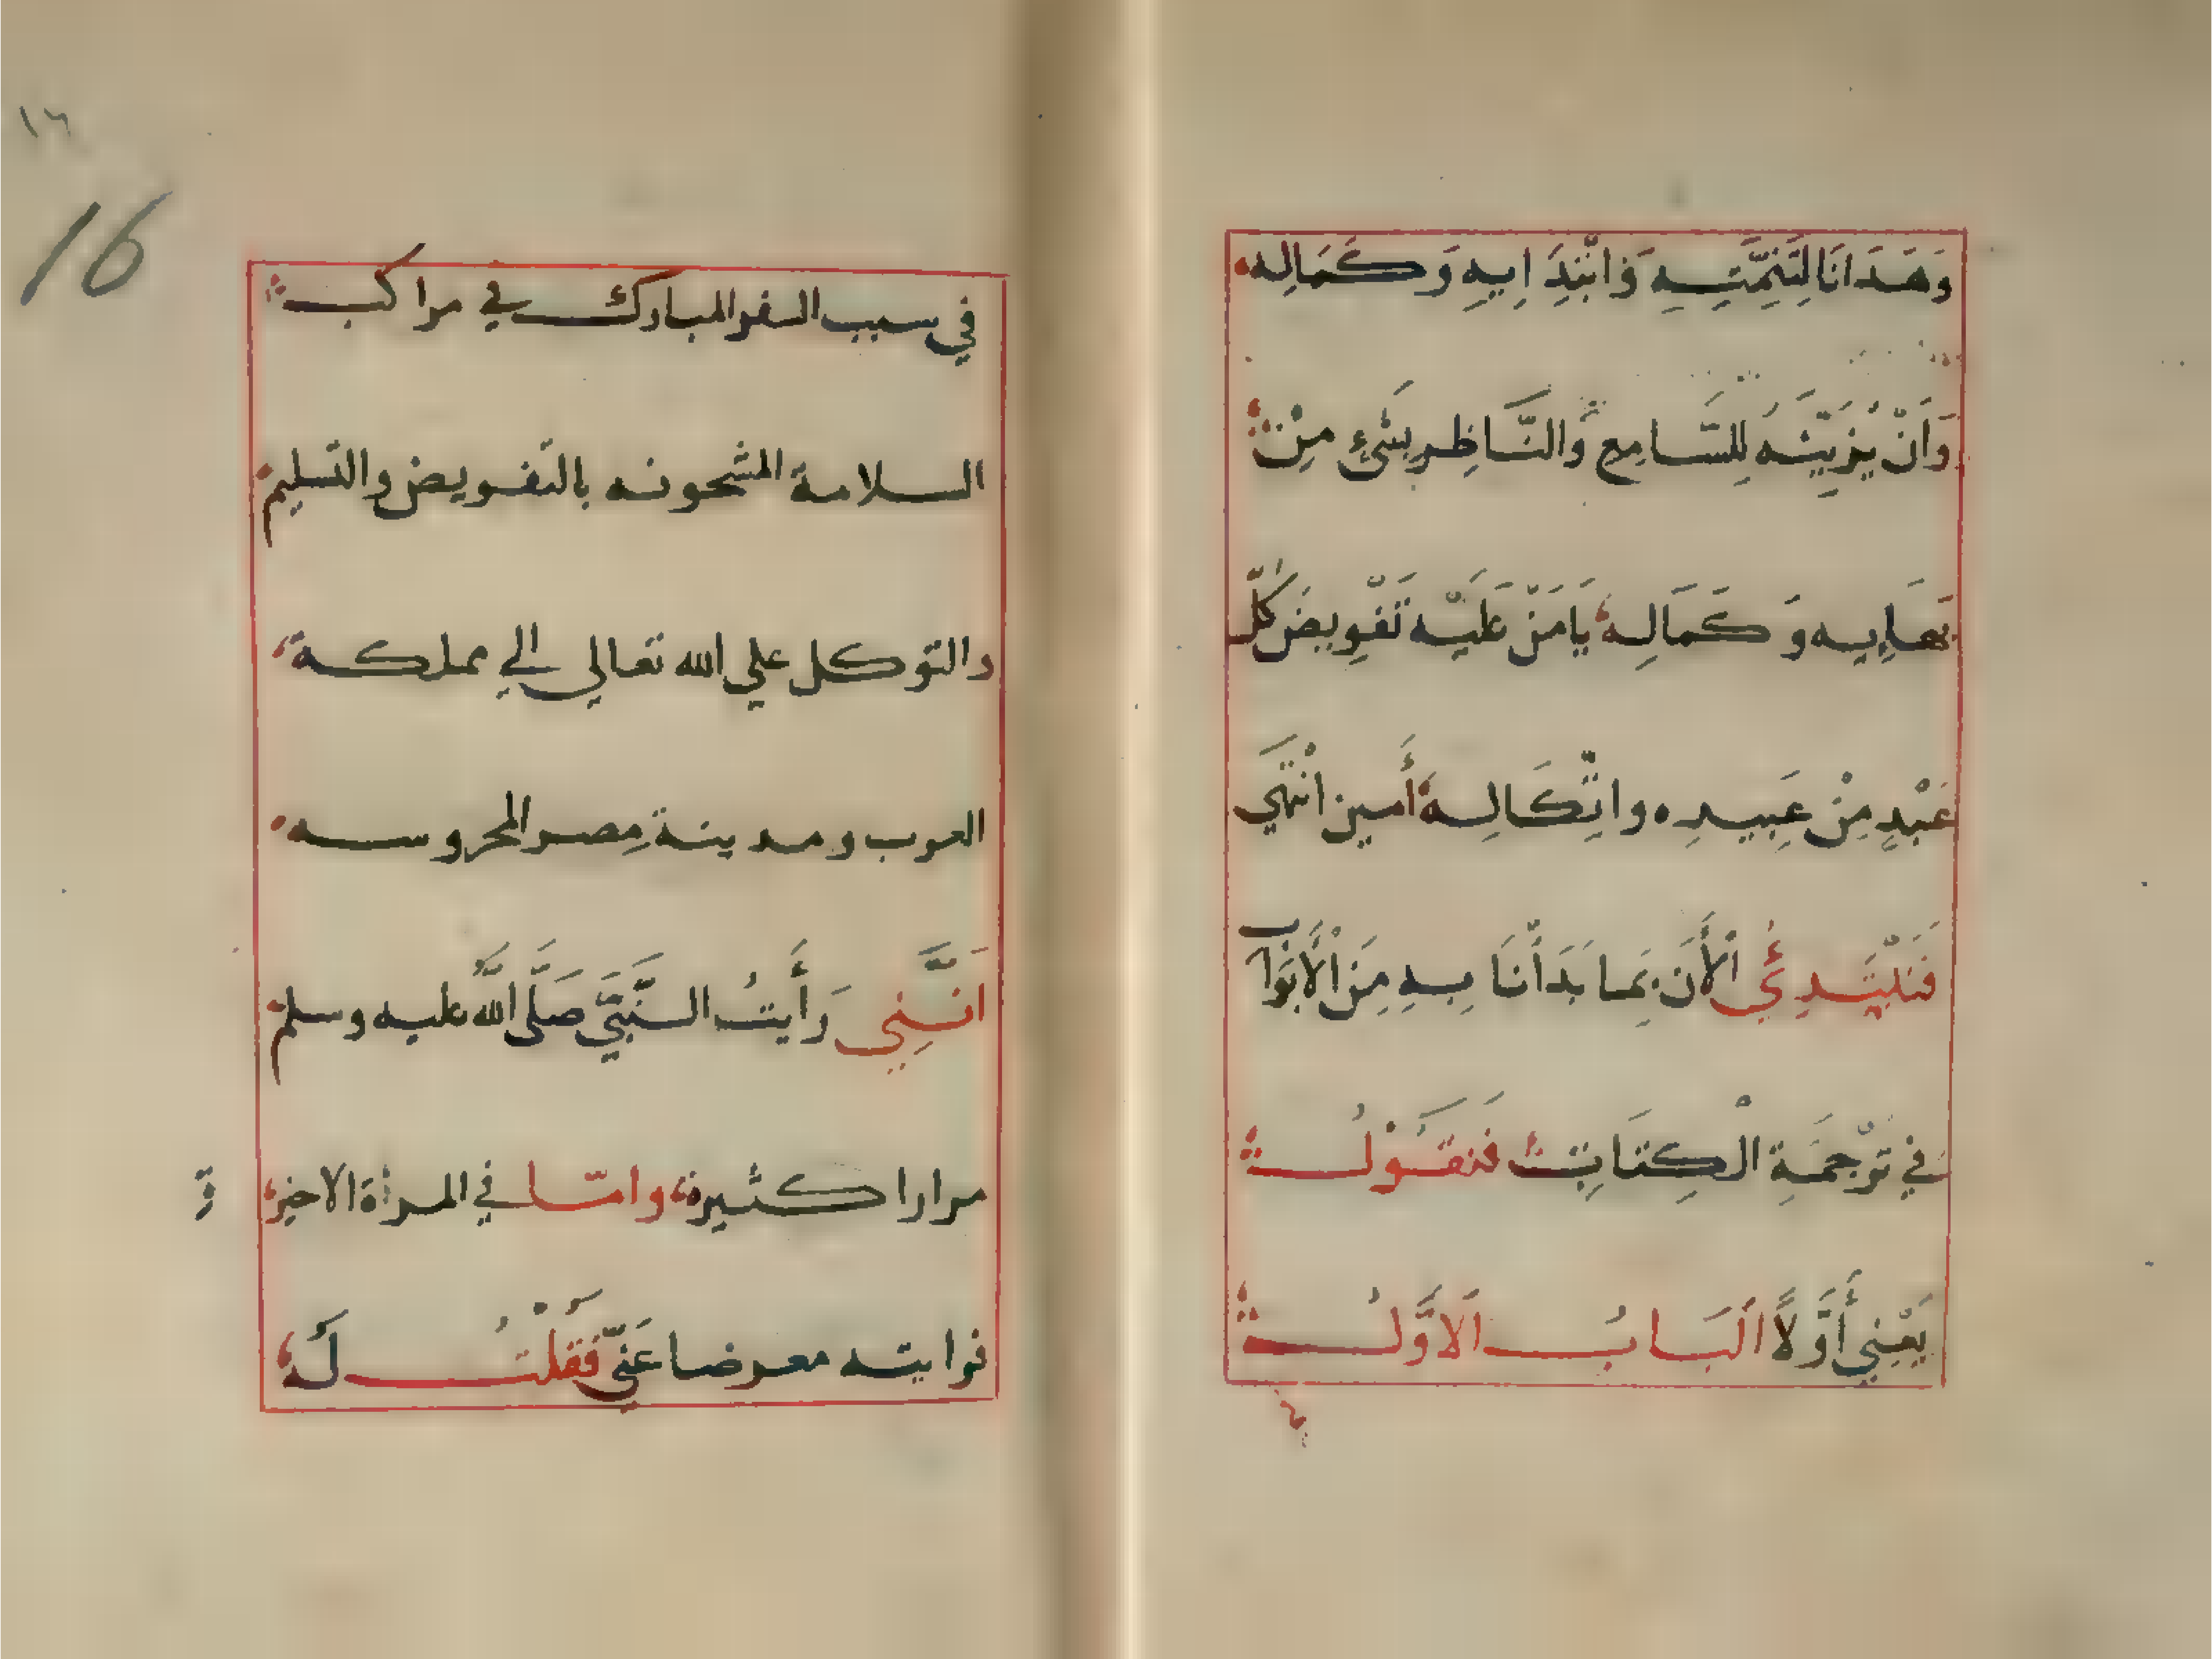 وَهَدَانَا لِتَتِمَّتِهِ وَابْتِدَايِهِ وَكَمَالِه
وَاَنْ يُزَيِّنَهُ لِلسَّامِعِ وَالنَّاظِرِ بِشَيْءٍ مِنْ
وَكَمَالِه يَا مَنْ عَلَيْه تَفْوِيضُ كُلِّ
عَبْدٍ مِنْ عَبِيدِه وَاتِّكَالِه أَمين انْتَهَي
فَنَبْتَدِئُ اْلأَنَ بِمَا بَدَأْنَا بِهِ مِنَ اْلاَبْوَابِ
فِي تَرْجَمَةِ الْكِتَابِ فَنَقُوْلُ
يَعْنِي أَوَّلاً اَلْبَابُ اَلاَوَّلُ
١٦
16
في سبب السفر المبارك في مراكب
السلامة المشحونه بالتفويض والتسليم
والتوكل علي الله تعالي الي مملكة
العرب ومدينة مصر المحروسه
اَنَّنِي رَأَيتُ النَّبِيَّ صَلَّى اللَّهُ عليه وسلم
مرارا كثيرة وامّا في المرأة الاخير
فرايته معرضا عَنِّي فَقُلْتُ لَهُ